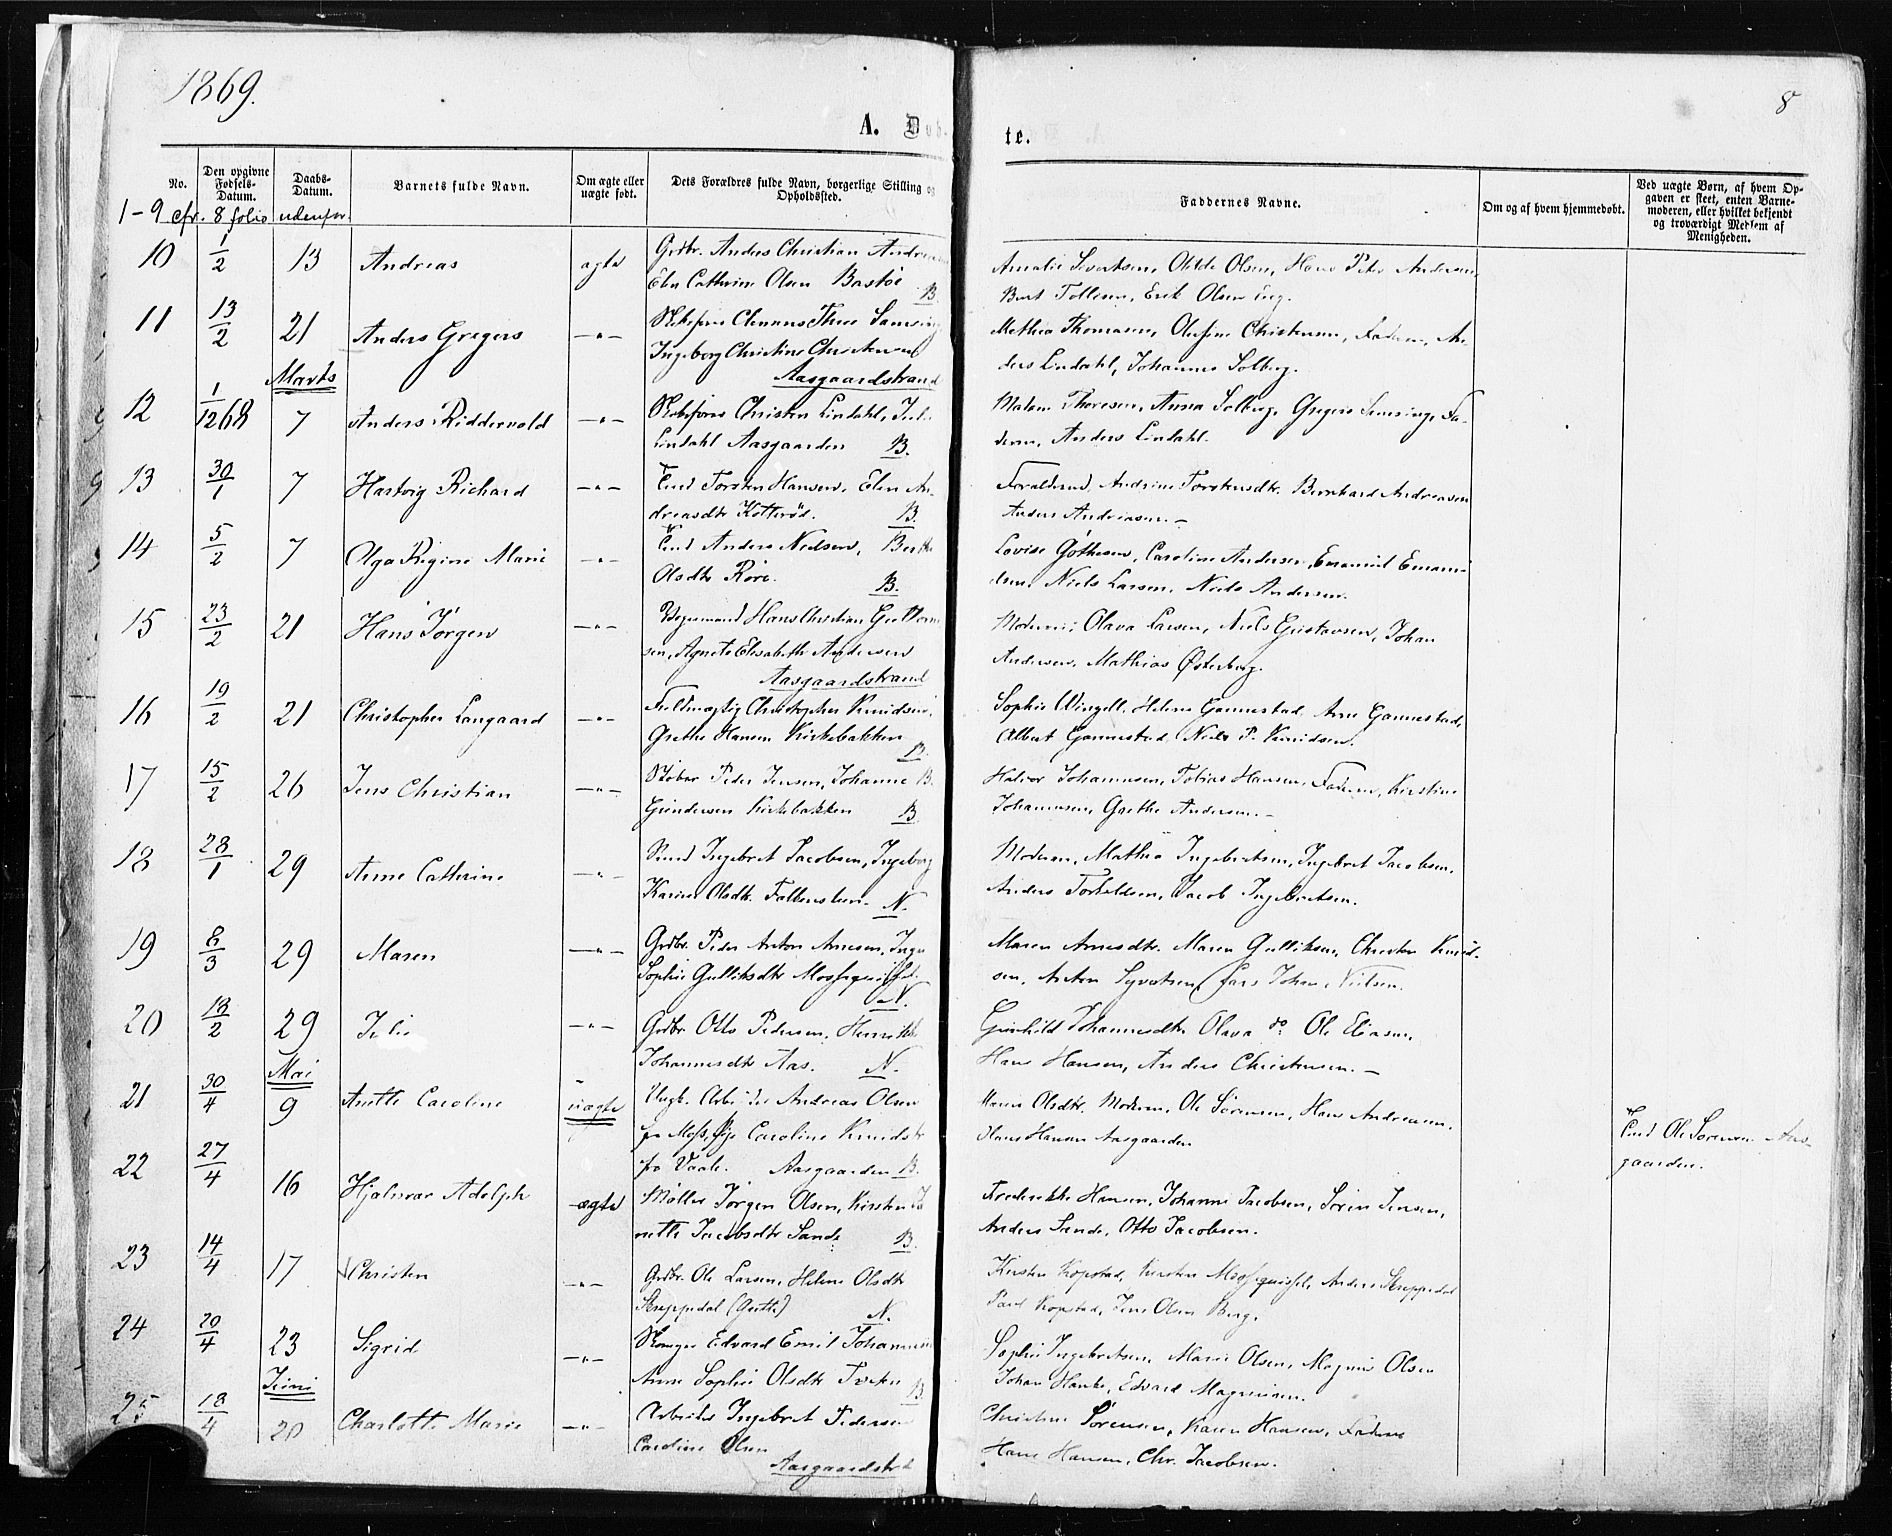 1869.
8
A. Døb-
te.
No.
Den opgivne Fødsels-Datum.
Daabs-Datum.
Barnets fulde Navn.
Om ægte eller uægte født.
Dets Forældres fulde Navn, borgerlige Stilling og Opholdssted.
Faddernes Navne.
Om og af hvem hjemmedøbt.
Ved uægte Børn, af hvem Opgaven er skeet, enten Barnemoderen, eller hvilket bekjendt og troværdigt Medlem af Menigheden.
1-9 cfr. 8 folio udenfor.
10 1/2 13 Andreas ægte Grdbr. Anders Christian
Elen Cathrine Olsen Bastøe B.
Amalie Sivertsen, Olsen, Hans Peter Andersen,
Tollesen, Erik Olsen Eeg.
11 13/2 21 Anders Gregers -"- Skibsfører
Ingeborg Christine Christensen
Aasgaardstrand
Mathea Thomasen, Olufine Christensen, Faderen, An-
ders Lindahl, Johannes Solberg.
Marts
12 1/12 68 7 Anders Riddervold -"- Skibsfører Christen Lindahl,
Lindahl Aasgaarden B.
Madam Thoresen, Anna Solberg, Gregers Fa-
deren, Anders Lindahl.
13 30/1 7 Hartvig Richard -"- Torsten Hansen, Elen An-
dreasdtr. B.
Forældrene, Andrine Torstensdtr. Bernhard Andreasen
Anders Andreasen.-
14 5/2 7 Olga Regine Marie -"- Anders Nielsen,
Olsdtr. Røre. B.
Lovise Caroline Andersen, Emanuel Emanu-
elsen, Niels Larsen, Niels Andersen.
15 23/2 21 Hans Jørgen -"- Hans Christian
sen, Agnete Elisabeth Andersen
Aasgaardstrand
Moderen, Olava Larsen, Niels Gustavsen, Johan
Andersen, Mathias Østerberg.
16 19/2 21 Christopher Langaard -"- Fuldmægtig Christopher Knudsen,
Grethe Hansen Kirkebakken B.
Sophie Wingell, Helene Gannestad, Arne Gannestad,
Albert Gannestad, Niels P. Knudsen.
17 15/2 26 Jens Christian -"- Peder Jensen, Johanne B.
Gundersen Kirkebakken B.
Halvor Johannesen, Tobias Hansen, Faderen, Kirstine
Johannesen, Grethe Andersen.-
18 28/1 29 Anne Cathrine -"- Ingebret Jacobsen, Ingeborg
Karine Olsdtr. Falkensteen N.
Moderen, Mathea Ingebretsen, Ingebret Jacobsen,
Anders Torkeldsen, Jacob Ingebretsen.
19 8/3 29 Maren -"- Grdbr. Peder Anton Arnesen,
Sophie Gulliksdtr. N.
Maren Arnesdtr. Maren Gulliksen, Christen Knud-
sen, Anton Syvertsen, Lars Johan Nielsen.
20 18/2 29 Julie -"- Grdbr. Otto Pedersen,
Johannesdtr. Aas. N.
Gunhild Johannesdtr. Olava do Ole Eliasen,
Hans Hansen, Anders Christensen.-
Mai
21 30/4 9 Anette Caroline uægte Ungk. Arbeider Andreas Olsen
fra Moss, Caroline Knudsdtr.
fra Vaale. Aasgaarden B.
Karen Olsdtr. Moderen, Ole Sørensen, Hans Andreasen,
Hans Hansen Aasgaarden
Ole Sørensen Aas-
gaarden.
22 27/4 16 Hjalmar Adolph ægte Møller Jørgen Olsen, Kirsten
Jacobsdtr. Sande B.
Frederikke Hansen, Johanne Jacobsen, Søren Jensen,
Anders Sande, Otto Jacobsen.
23 14/4 17 Christen -"- Grdbr. Ole Larsen, Helene Olsdtr.
Skreppedal N.
Kirsten Kopstad, Kirsten Anders Skreppedal
Paul Kopstad, Jens Olsen Berg.
24 20/4 23 Sigrid -"- Edvard Emil Johannesen
Anne Sophie Olsdtr. B
Sophie Ingebretsen, Marie Olsen, Magnus Olsen
Johan Edvard Magnusen.
Juni
25 18/4 20 Charlotte Marie -"- Arbeider Ingebret Pedersen
Caroline Olsen
Aasgaardstr.
Christine Sørensen, Karen Hansen, Faderen
Hans Hansen, Chr. Jacobsen.